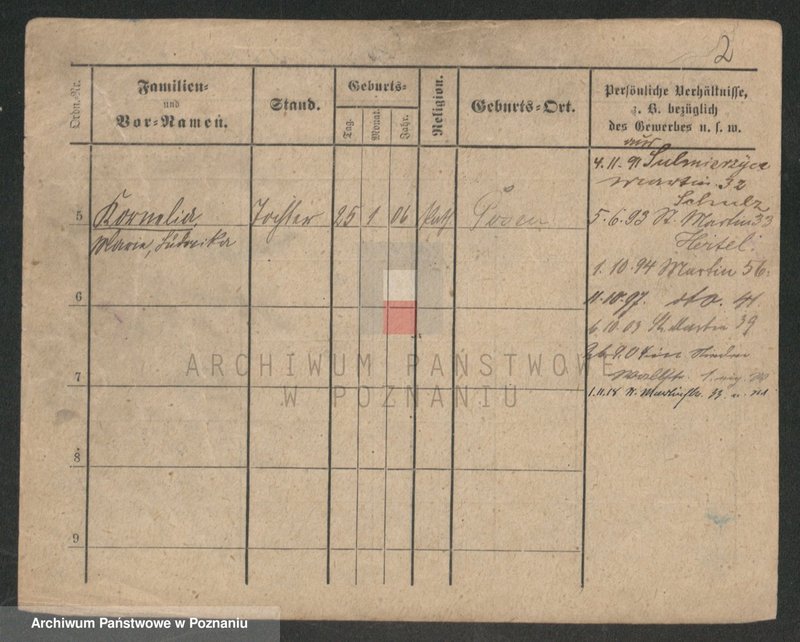 2
Ordn.-Nr.
Familien-
und
Vor-Namen.
Stand.
Geburts-
Tag.
Monat.
Jahr.
Religion.
Geburts-Ort.
Persönliche Verhältnisse,
z. B. bezüglich
des Gewerbes u. s. w.
aus
4.11.91 Sulmierzyce
Martin 32
Schulz
5 Kornelia, Tochter 25 1 06 kath Posen
Marie, Ludovika
5.6.93 St. Martin 33
Hertel
1.10.94 Martin 56.
6
11.10.97. dto. 41
6 10 03 St. Martin 39
7
Wallstr.
1.11.18 St. Martinstr.
8
9
ARCHIWUM PAŃSTWOWE
W POZNANIU
Archiwum Państwowe w Poznaniu